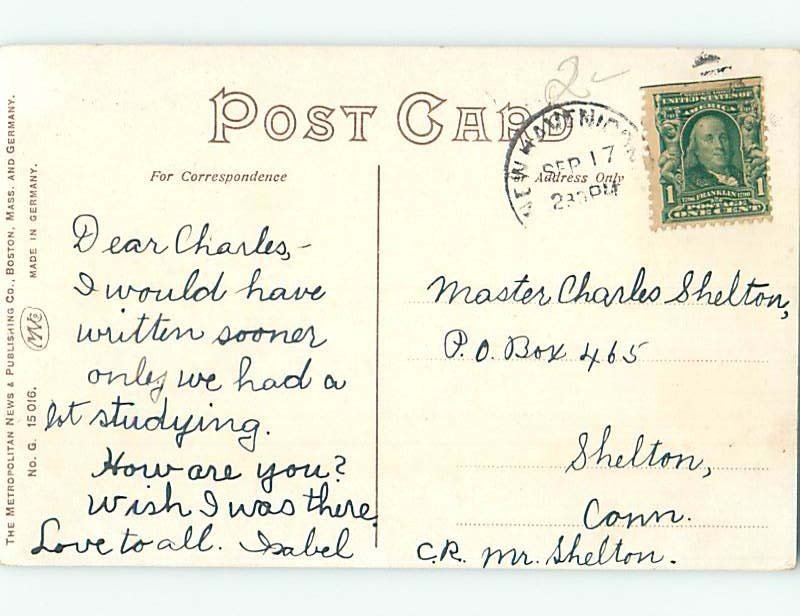 POST CARD
2-
For Correspondence
Address Only
NEW HAVEN, CONN
SEP 17
230PM
UNITED STATES OF
AMERICA
1 FRANKLIN 1
POSTAGE
ONE CENT
Dear Charles,-
I would have
written sooner
only we had a
lot studying.
How are you?
Wish I was there.
Love to all. Isabel
Master Charles Shelton,
P.O. Box 465
Shelton,
Conn.
C.R. Mr. Shelton.
THE METROPOLITAN NEWS & PUBLISHING CO., BOSTON, MASS. AND GERMANY.
No. G. 15016.
MADE IN GERMANY.